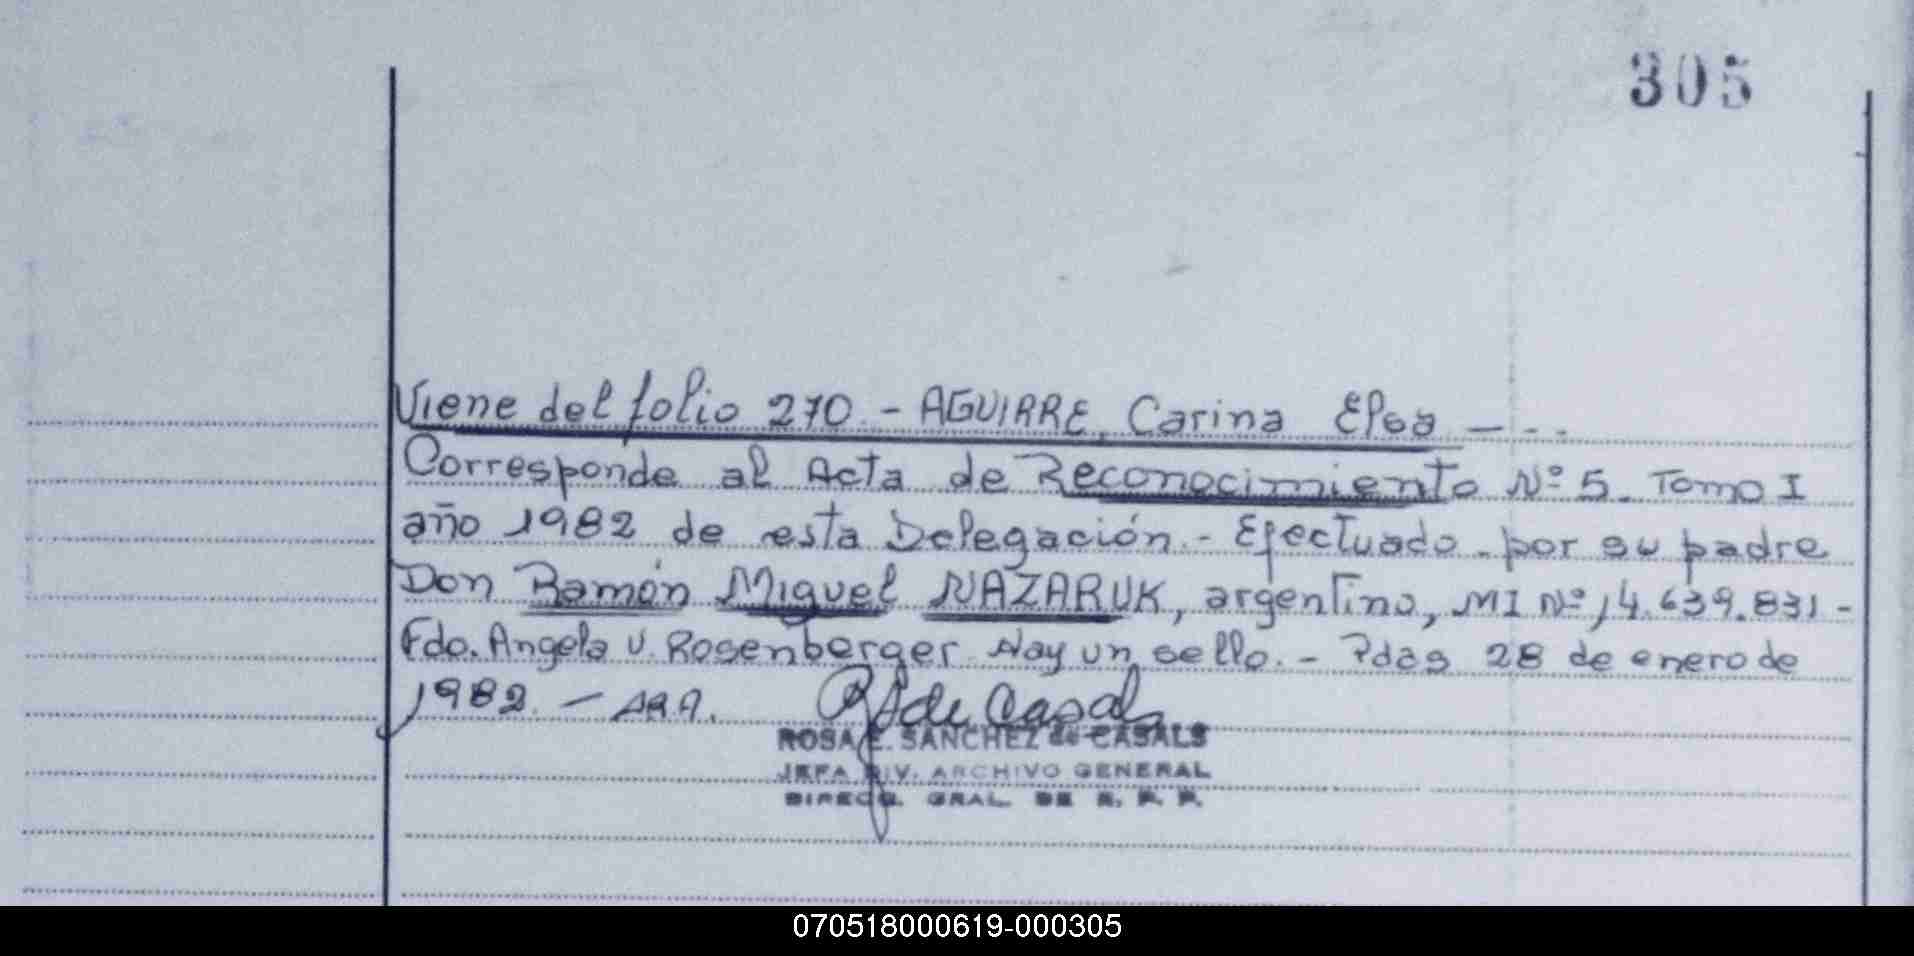 305
Viene del folio 270.- AGUIRRE, Carina Elsa - - -
Corresponde al Acta de Reconocimiento Nº 5. Tomo I
año 1982 de esta Delegación.- Efectuado por su padre
Don Ramón Miguel NAZARUK, argentino, MI Nº 14.639.831-
Fdo. Angela V. Rosenberger. Hay un sello.- Pdas 28 de enero de
1982.-
ROSA E. SANCHEZ de CASALS
JEFA DIV. ARCHIVO GENERAL
DIRECC. GRAL. DE R. P. P.
070518000619-000305